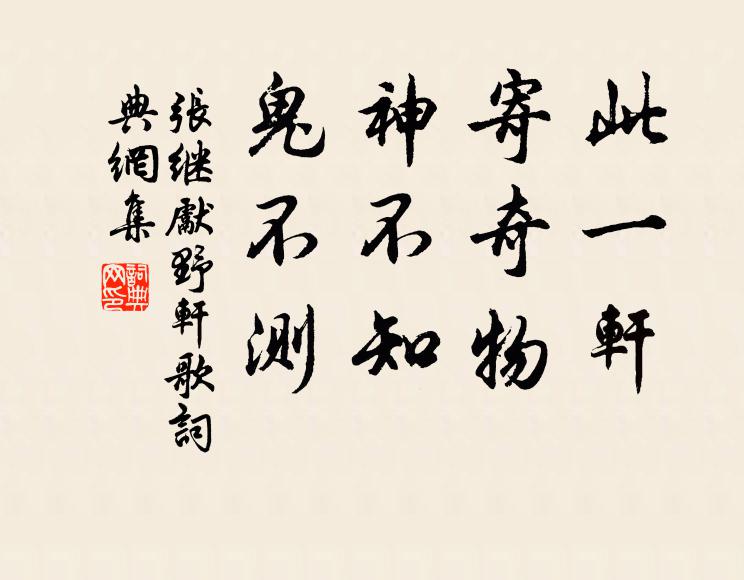 此一軒
寄奇物
神不知
鬼不測
張継獻野軒歌詞
典網集
詞典
网印